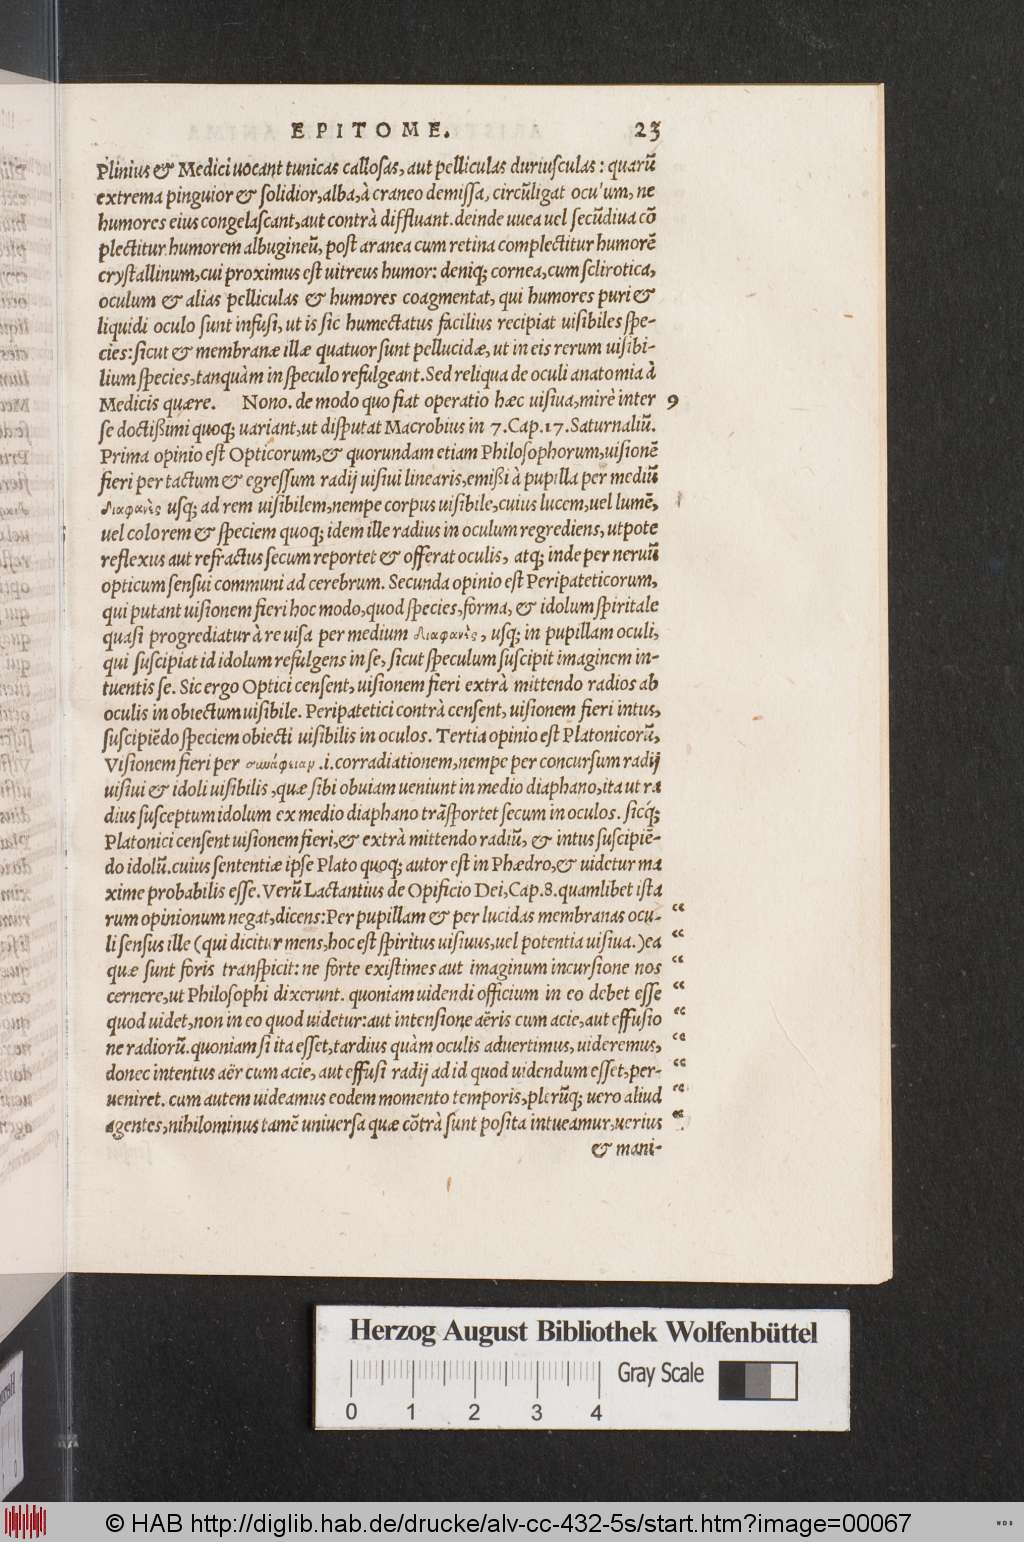 EPITOME. 23
Plinius & Medici uocant tunicas callosas, aut pelliculas duriusculas: quarũ
extrema pinguior & solidior, alba, à craneo demissa, circũligat oculum, ne
humores eius congelascant, aut contrà diffluant. deinde uuea uel secũdiua cõ
plectitur humorem albugineũ, post aranea cum retina complectitur humorẽ
crystallinum, cui proximus est uitreus humor: deniq; cornea, cum sclirotica,
oculum & alias pelliculas & humores coagmentat, qui humores puri &
liquidi oculo sunt infusi, ut is sic humectatus facilius recipiat uisibiles spe-
cies: sicut & membranæ illæ quatuor sunt pellucidæ, ut in eis rerum uisibi-
lium species, tanquàm in speculo refulgeant. Sed reliqua de oculi anatomia à
Medicis quære. Nono. de modo quo fiat operatio hæc uisiua, mirè inter 9
se doctißimi quoq; uariant, ut disputat Macrobius in 7. Cap. 17. Saturnaliũ.
Prima opinio est Opticorum, & quorundam etiam Philosophorum, uisionẽ
fieri per tactum & egressum radij uisiui linearis, emißi à pupilla per mediũ
διαφανὲς usq; ad rem uisibilem, nempe corpus uisibile, cuius lucem, uel lumẽ,
uel colorem & speciem quoq; idem ille radius in oculum regrediens, utpote
reflexus aut refractus secum reportet & offerat oculis, atq; inde per neruũ
opticum sensui communi ad cerebrum. Secunda opinio est Peripateticorum,
qui putant uisionem fieri hoc modo, quod species, forma, & idolum spiritale
quasi progrediatur à re uisa per medium διαφανὲς, usq; in pupillam oculi,
qui suscipiat id idolum refulgens in se, sicut speculum suscipit imaginem in-
tuentis se. Sic ergo Optici censent, uisionem fieri extrà mittendo radios ab
oculis in obiectum uisibile. Peripatetici contrà censent, uisionem fieri intus,
suscipiẽdo speciem obiecti uisibilis in oculos. Tertia opinio est Platonicorũ,
Visionem fieri per συνάφειαν .i. corradiationem, nempe per concursum radij
uisiui & idoli uisibilis, quæ sibi obuiam ueniunt in medio diaphano, ita ut ra
dius susceptum idolum ex medio diaphano trãsportet secum in oculos. sicq́;
Platonici censent uisionem fieri, & extrà mittendo radiũ, & intus suscipiẽ-
do idolũ. cuius sententiæ ipse Plato quoq; autor est in Phædro, & uidetur ma
xime probabilis esse. Verũ Lactantius de Opificio Dei, Cap. 8. quamlibet ista
rum opinionum negat, dicens: Per pupillam & per lucidas membranas ocu- “
li sensus ille (qui dicitur mens, hoc est spiritus uisiuus, uel potentia uisiua.) ea “
quæ sunt foris transpicit: ne forte existimes aut imaginum incursione nos “
cernere, ut Philosophi dixerunt. quoniam uidendi officium in eo debet esse “
quod uidet, non in eo quod uidetur: aut intensione aëris cum acie, aut effusio “
ne radiorũ. quoniam si ita esset, tardius quàm oculis aduertimus, uideremus, “
donec intentus aër cum acie, aut effusi radij ad id quod uidendum esset, per- “
ueniret. cum autem uideamus eodem momento temporis, plerũq; uero aliud “
agentes, nihilominus tamẽ uniuersa quæ cõtrà sunt posita intueamur, uerius “
& mani-
Herzog August Bibliothek Wolfenbüttel
Gray Scale
0 1 2 3 4
© HAB http://diglib.hab.de/drucke/alv-cc-432-5s/start.htm?image=00067